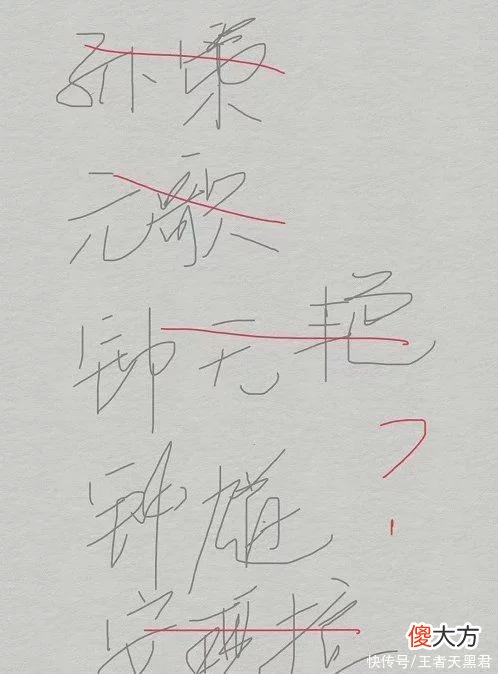 孙策
元歌
钟无艳
钟馗
?
安琪拉
傻大方
快传号/王者天黑君